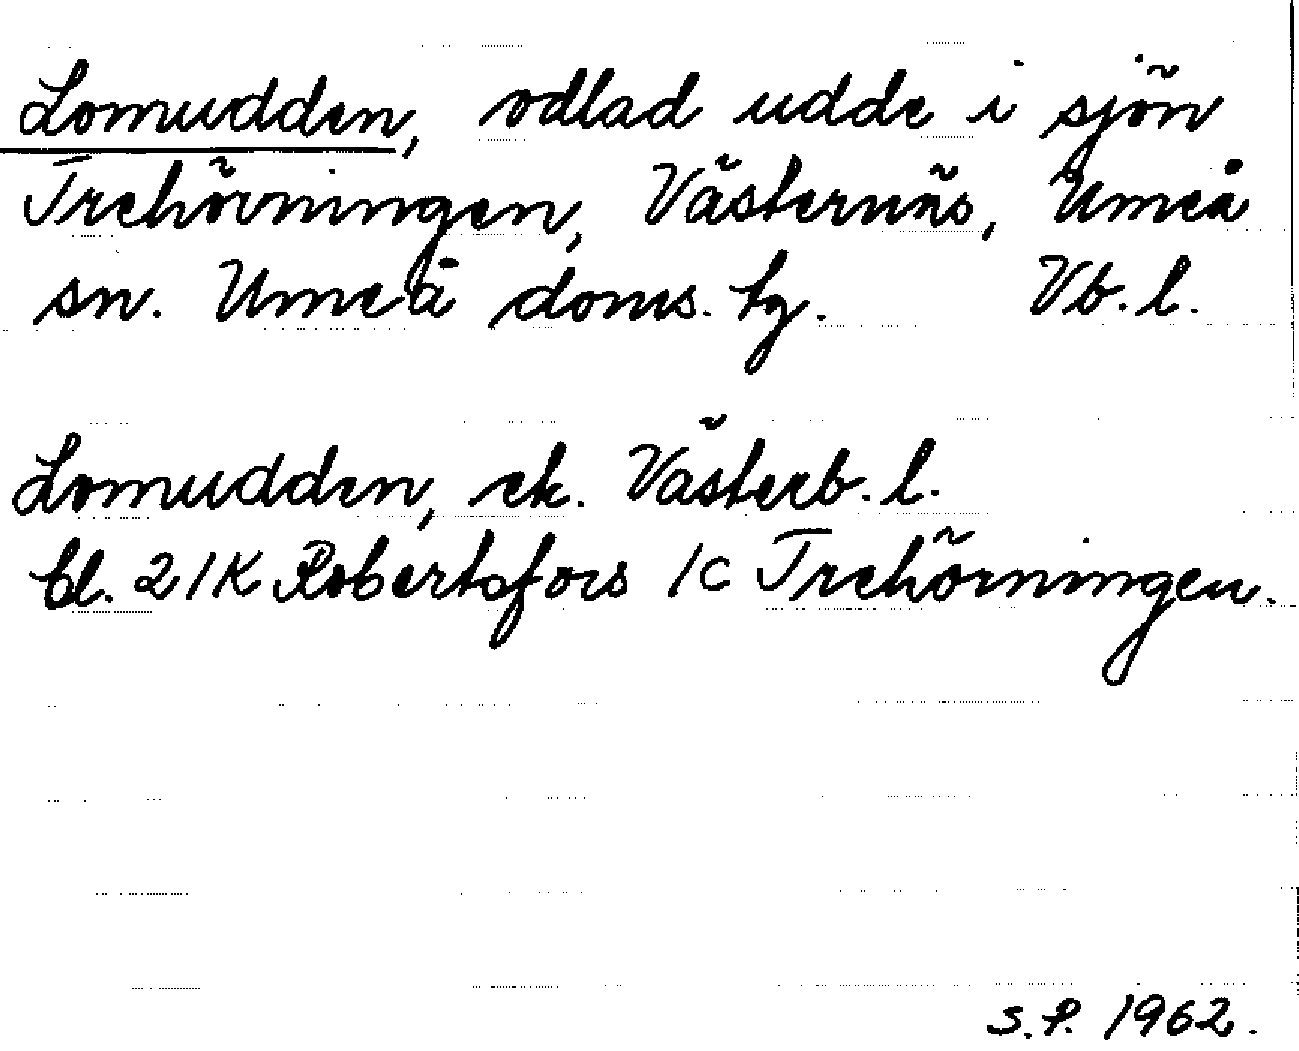 Lomudden, odlad udde i sjön
Trehörningen, Västernäs, Umeå
sn. Umeå doms. tg. Vb. l.
Lomudden, ek. Västerb. l.
bl. 21K Robertsfors 1c Trehörningen.
S.P. 1962.